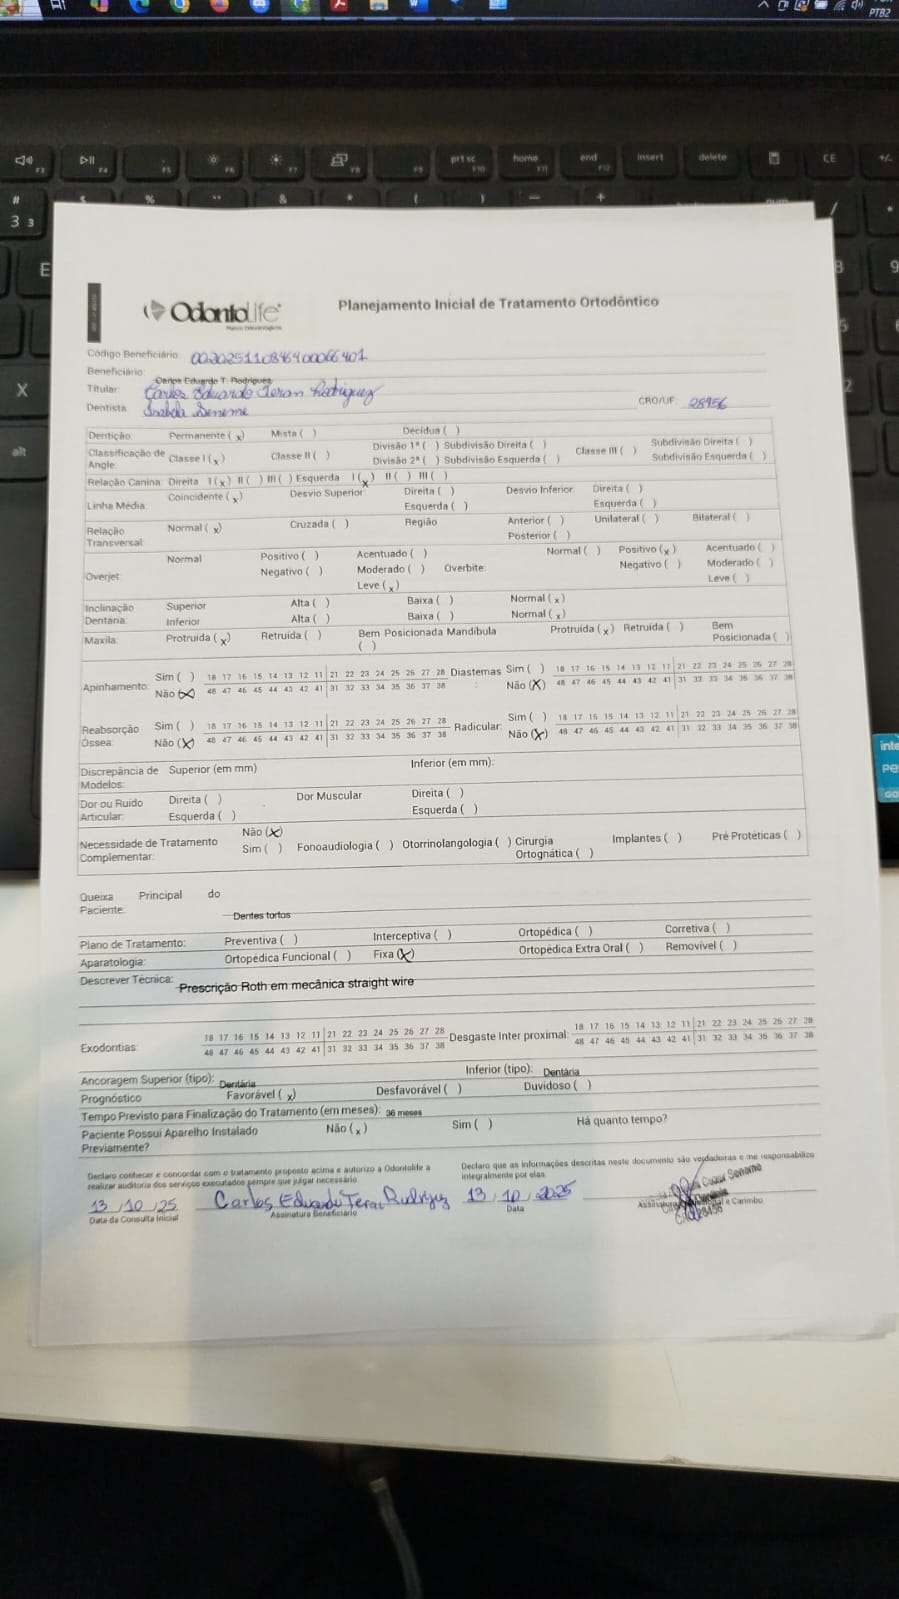 PTB2
F3 F4 F5 F6 F7 F8 F9 prt sc F10 home F11 end F12 insert delete CE +/-
# 3 3 $ % ¨ & * ( ) — + num /
E
X
alt
OdontoLife
Planos Odontológicos
Planejamento Inicial de Tratamento Ortodôntico
Código Beneficiário:
Beneficiário: Carlos Eduardo T. Rodriguez
Titular: Carlos Eduardo Teran Rodriguez
Dentista: Isabela Seneme CRO/UF: 28456
Dentição: Permanente (x) Mista ( ) Decídua ( )
Classificação de Angle: Classe I (x) Classe II ( ) Divisão 1ª ( ) Subdivisão Direita ( ) Classe III ( ) Subdivisão Direita ( )
Divisão 2ª ( ) Subdivisão Esquerda ( ) Subdivisão Esquerda ( )
Relação Canina: Direita I (x) II ( ) III ( ) Esquerda I (x) II ( ) III ( )
Linha Média: Coincidente (x) Desvio Superior: Direita ( ) Desvio Inferior: Direita ( )
Esquerda ( ) Esquerda ( )
Relação Transversal: Normal (x) Cruzada ( ) Região Anterior ( ) Unilateral ( ) Bilateral ( )
Posterior ( )
Overjet: Normal Positivo ( ) Acentuado ( ) Overbite: Normal ( ) Positivo (x) Acentuado ( )
Negativo ( ) Moderado ( ) Negativo ( ) Moderado ( )
Leve (x) Leve ( )
Inclinação Dentária: Superior Alta ( ) Baixa ( ) Normal (x)
Inferior Alta ( ) Baixa ( ) Normal (x)
Maxila: Protruída (x) Retruída ( ) Bem Posicionada ( ) Mandíbula Protruída (x) Retruída ( ) Bem Posicionada ( )
Apinhamento: Sim ( ) 18 17 16 15 14 13 12 11 21 22 23 24 25 26 27 28 Diastemas: Sim ( ) 18 17 16 15 14 13 12 11 21 22 23 24 25 26 27 28
Não (x) 48 47 46 45 44 43 42 41 31 32 33 34 35 36 37 38 Não (x) 48 47 46 45 44 43 42 41 31 32 33 34 35 36 37 38
Reabsorção Óssea: Sim ( ) 18 17 16 15 14 13 12 11 21 22 23 24 25 26 27 28 Radicular: Sim ( ) 18 17 16 15 14 13 12 11 21 22 23 24 25 26 27 28
Não (x) 48 47 46 45 44 43 42 41 31 32 33 34 35 36 37 38 Não (x) 48 47 46 45 44 43 42 41 31 32 33 34 35 36 37 38
Discrepância de Modelos: Superior (em mm) Inferior (em mm):
Dor ou Ruído Articular: Direita ( ) Dor Muscular Direita ( )
Esquerda ( ) Esquerda ( )
Necessidade de Tratamento Complementar: Não (x)
Sim ( ) Fonoaudiologia ( ) Otorrinolangologia ( ) Cirurgia Ortognática ( ) Implantes ( ) Pré Protéticas ( )
Queixa Principal do Paciente: Dentes tortos
Plano de Tratamento: Preventiva ( ) Interceptiva ( ) Ortopédica ( ) Corretiva ( )
Aparatologia: Ortopédica Funcional ( ) Fixa (x) Ortopédica Extra Oral ( ) Removível ( )
Descrever Técnica: Prescrição Roth em mecânica straight wire
Exodontias: 18 17 16 15 14 13 12 11 21 22 23 24 25 26 27 28 Desgaste Inter proximal: 18 17 16 15 14 13 12 11 21 22 23 24 25 26 27 28
48 47 46 45 44 43 42 41 31 32 33 34 35 36 37 38 48 47 46 45 44 43 42 41 31 32 33 34 35 36 37 38
Ancoragem Superior (tipo): Dentária Inferior (tipo): Dentária
Prognóstico Favorável (x) Desfavorável ( ) Duvidoso ( )
Tempo Previsto para Finalização do Tratamento (em meses): 36 meses
Paciente Possui Aparelho Instalado Previamente? Não (x) Sim ( ) Há quanto tempo?
Declaro conhecer e concordar com o tratamento proposto acima e autorizo a Odontolife a
realizar auditoria dos serviços executados sempre que julgar necessário.
Declaro que as informações descritas neste documento são verdadeiras e me responsabilizo
integralmente por elas.
13/10/25 Carlos Eduardo Teran Rodriguez 13/10/2025
Data da Consulta Inicial Assinatura Beneficiário Data Carimbo